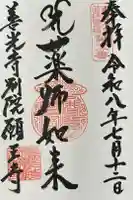 奉拝 令和八年七月十二日
薬師如来
善光寺別院願王寺